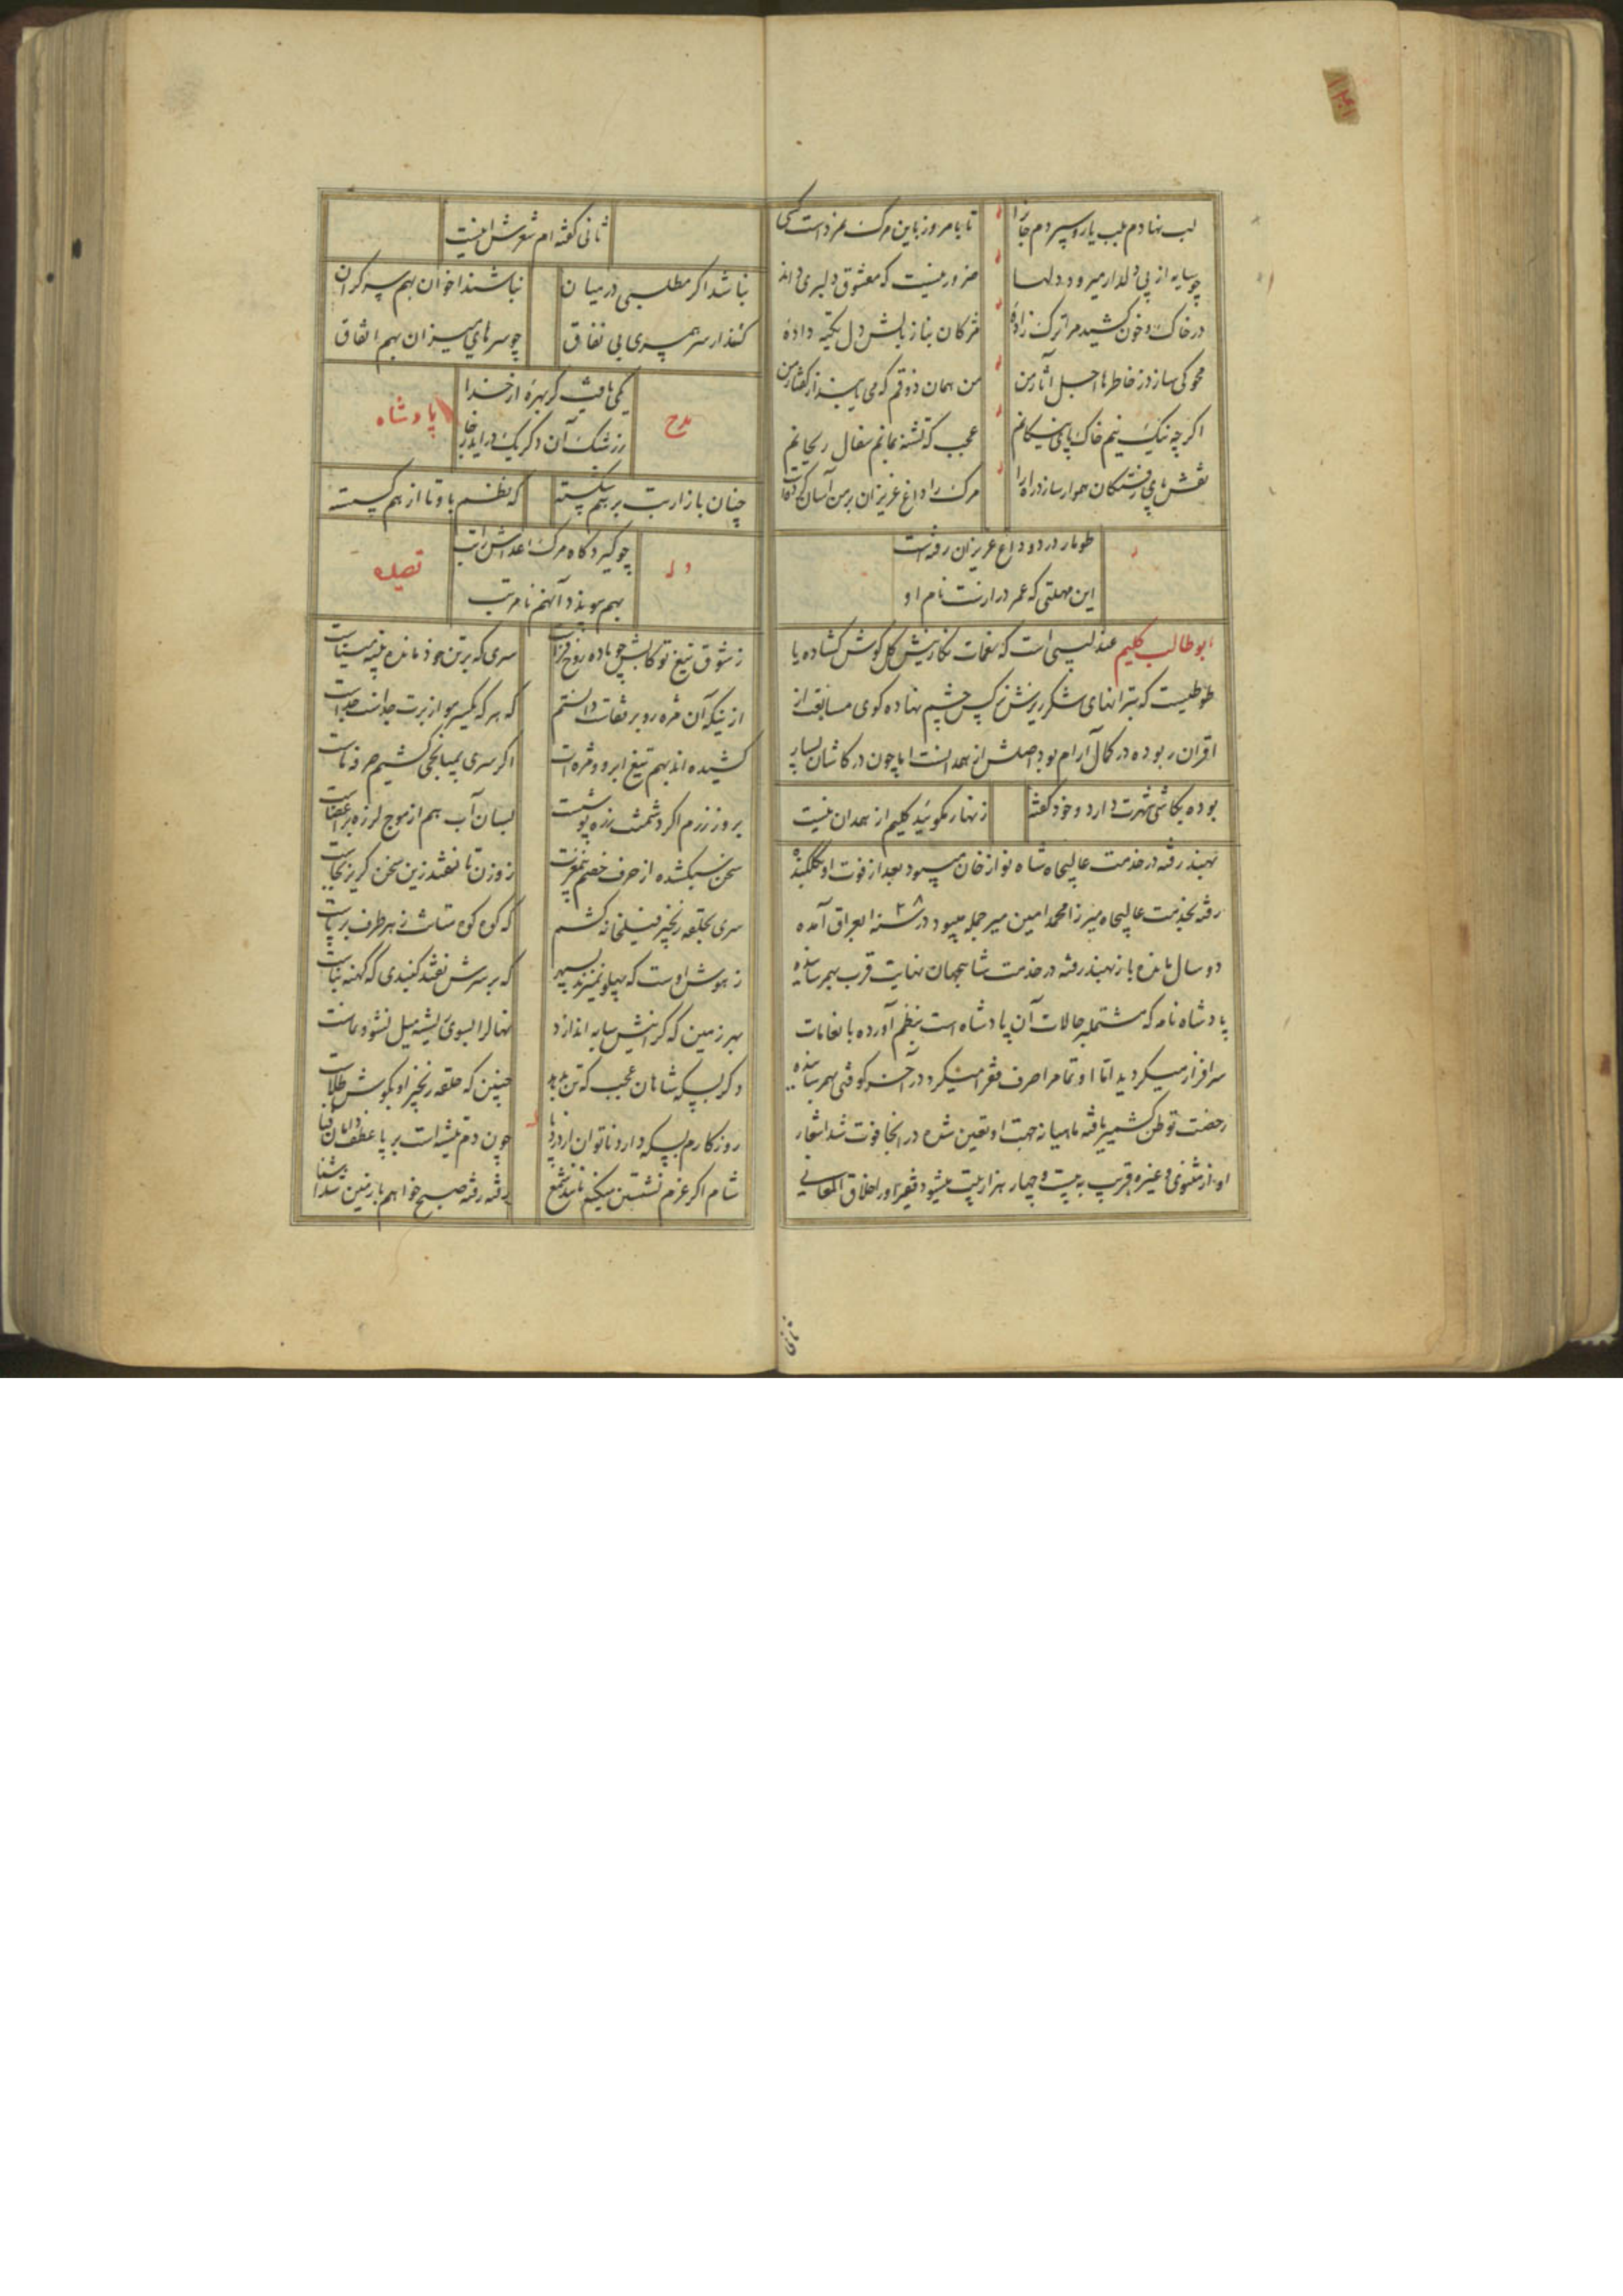 لب نهادم بلب یار و سپردم جانرا
تا بامروز باین مرک نمرداست کسی
چو سایه از پی دلدار میرود دلها
ضرور نیست که معشوق دلبری داند
در خاک و خون کشید مرا ترک زاده
مژکان بناز بالش دل تکیه داده
محو کی سازد ز خاطرها اجل آثار من
من همان ذوقم که می یابند از کفتار من
اکر چه نیک نیم خاک پای نیکانم
عجب که تشنه بمانم سفال ریحانم
نقش پای رفتکان هموار سازد راه را
مرک را داغ عزیزان بر من آسان کرده است
طومار درد و داغ عزیزان رفته است
این مهلتی که عمر درازست نام او
ابو طالب کلیم عندلیبی است که بنغمات نکارینش کل کوش کشاده یا
طوطیست که بترانهای شکر ریزش نرکس چشم نهاده کوی مسابقت از
اقران ربوده در کمال آرام بود اصلش از همدانست اما چون در کاشان بسیار
بوده بکاشی شهرت دارد و خود کفته
زنهار مکوئید کلیم از همدان نیست
بهند رفته در خدمت عالیجاه شاه نواز خان میبود بعد از فوت او
رفته بخدمت عالیجاه میرزا محمد امین میر جمله میبود در سنه ۳۸ بعراق آمده
دو سال مانده باز بهند رفته در خدمت شاهجهان نهایت قرب بهم رسانیده
پادشاه نامه که مشتمل بر حالات آن پادشاه است بنظم آورده بانعامات
سرافراز میکردید اما او تمام را صرف فقرا میکرد در آخر کوفتی بهم رسانیده
رخصت توطن کشمیر یافته ماهیانه جهت او تعین شده در آنجا فوت شد اشعار
او از مثنوی و غیره قریب به بیست و چهار هزار بیت میشود فقیر او را خلاق المعانی
ثانی کفته ام شعرش اینست
نباشد اکر مطلبی در میان
نباشند اخوان بهم سر کران
کنند از سر همسری بی نفاق
چو سرهای میزان بهم اتفاق
مدح
یکی یافت کر بهره از خدا
ز رشک آن دکر یک در اید ز جا
پادشاه
چنان بازار بت بر هم شکسته
که نظم با و تا از هم کسسته
وله
چو کیرد کاه مرک اعداش را تب
بهم سوزند آنهم نامرتب
قصیده
ز شوق تیغ تو کابش چو باده روح فزاست
سری که بر تن خود مانده پنبه میناست
از نیکه آن مژه رو بر نتافت دانستم
که هر که یکسر مو از برت جداست جداست
کشیده اند بهم تیغ ابرو و مژه ات
اکر سری بمیانجی کشیم صرفه ماست
بروز رزم اکر دشمنت زره پوشست
بسان آب هم از موج لرزه بر اعضاست
سخن سبک شده از حرف خصم بیمغزت
ز وزن تا نفتد زین سخن کریز بجاست
سری بحلقه زنجیر فیلخانه کشم
که کوه کوه متانت ز هر طرف برپاست
ز هوش اوست که پهلو نمیزند بسپهر
که بر سرش نفتد کنبدی که کهنه بناست
بهر زمین که کرانیش سایه اندازد
نهال را بسوی ریشه میل نشو و نماست
دکر بسیکه شاهان عجب که تن بدهد
چنین که حلقه زنجیر او بکوش طلاست
روزکارم بسکه دارد ناتوان از درد پا
چون دم تیشه است بر پا عطف دامان قبا
شام اکر عزم نشستن میکنم مانند شمع
رفته رفته صبح خواهم با زمین شد آشنا